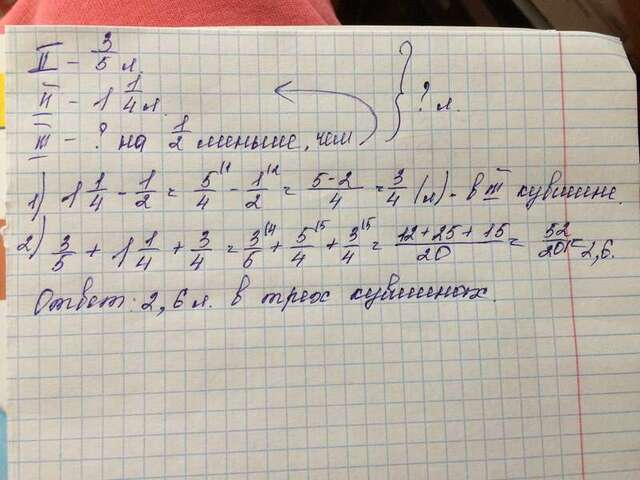 II - 3/5 л.
II - 1 1/4 л.
III - ? на 1/2 меньше, чем } ? л.
1) 1 1/4 - 1/2 = 5/4 - 1/2 = (5-2)/4 = 3/4 (л) - в III кувшине.
2) 3/5 + 1 1/4 + 3/4 = 3/5 + 5/4 + 3/4 = (12+25+15)/20 = 52/20 = 2,6.
Ответ: 2,6 л. в трех кувшинах.